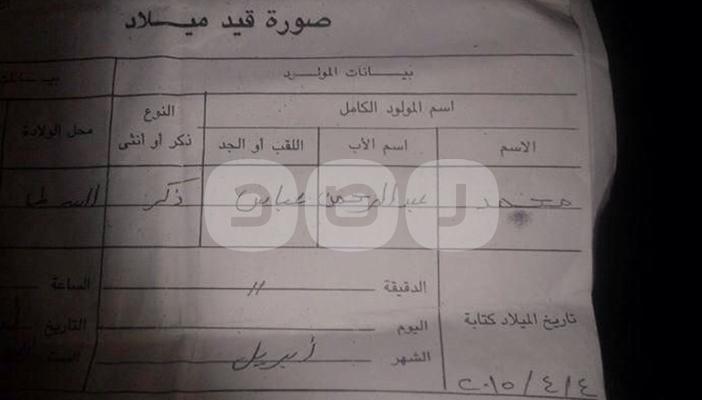 صورة قيد ميلاد
بيانات المولود
اسم المولود الكامل
النوع
ذكر أو أنثى
محل الولادة
الاسم
اسم الأب
اللقب أو الجد
محمد
عبد الرحمن
عباس
ذكر
رصد
الدقيقة
"
الساعة
تاريخ الميلاد كتابة
اليوم
التاريخ
الشهر
أبريل
٢٠١٥/٤/٤